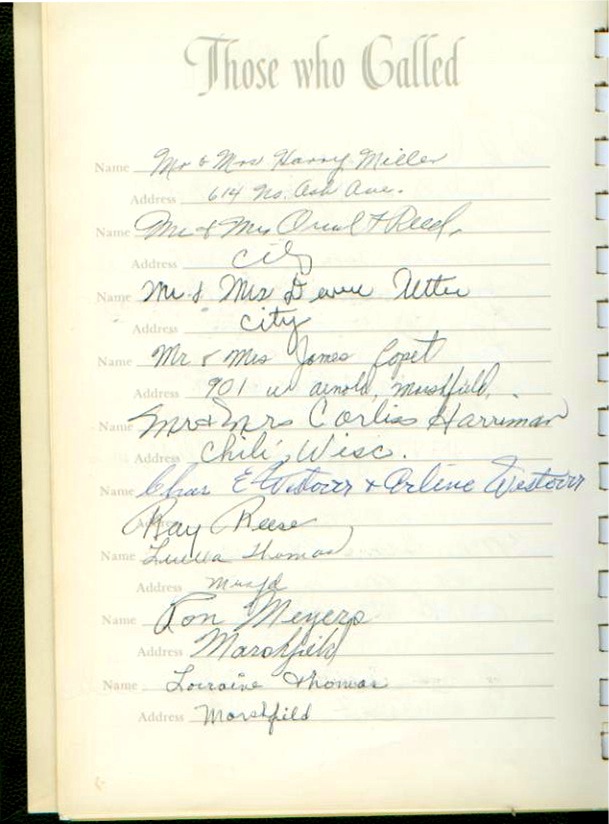 Those who Called
Name Mr & Mrs Harry Miller
Address 614 No. Ash Ave.
Name Mr & Mrs F Reed.
Address City
Name Mr & Mrs Utter
Address City
Name Mr & Mrs James Copet
Address 901 w arnold, marshfield,
Name Mr & Mrs Corliss Harriman
Address Chili, Wisc.
Name Chas E Westover & Arlene Westover
Address Ray Reese
Name Luella Thomas
Address
Name Ron Meyers
Address Marshfield
Name Lorraine Thomas
Address Marshfield